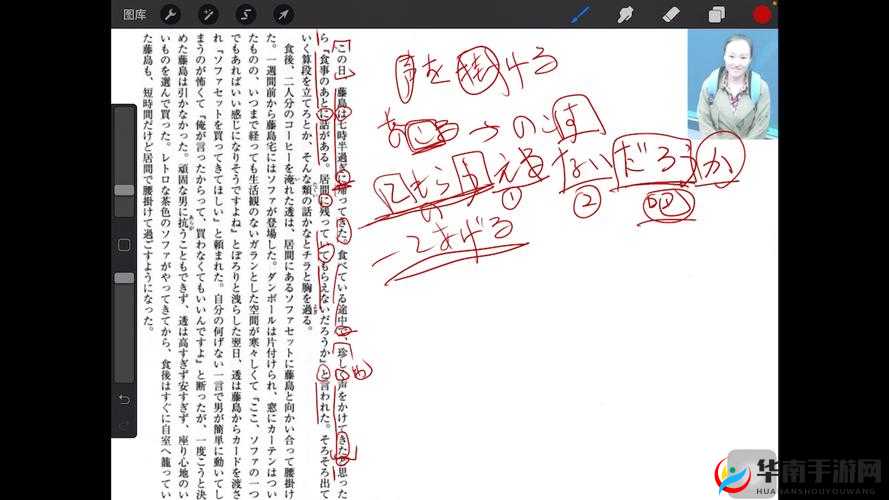 图库
声を掛ける
てもらえないだろうか
①
②
吧
てあげる
この日、藤島は七時半過ぎに帰ってきた。食べている途中で、珍しく声をかけてきたと思った
ら「食事のあとに話がある。居間に残っててもらえないだろうか」と言われた。そろそろ出て
いく算段を立てろとか、そんな類の話かなとチラと胸を過る。
食後、二人分のコーヒーを淹れた透は、居間にあるソファセットに藤島と向かい合って腰掛け
た。一週間前から藤島宅にはソファが登場した。ダンボールは片付けられ、窓にカーテンはつい
たものの、いつまで経っても生活観のないガランとした空間が寒々しくて「ここ、ソファの一つ
でもあればいい感じになりそうですよね」とぽろりと洩らした翌日、透は藤島からカードを渡さ
れ「ソファセットを買ってきてほしい」と頼まれた。自分の何げない一言で男が簡単に動いてし
まうのが怖くて「俺が言ったからって、買わなくてもいいんですよ」と断ったが、一度こうと決
めた藤島は引かなかった。頑固な男に抗うこともできず、透は高すぎず安すぎず、座り心地のい
いものを選んで買った。レトロな茶色のソファがやってきてから、食後はすぐに自室へ籠ってい
た藤島も、短時間だけど居間で腰掛けて過ごすようになった。
华南手游网
HUANANSHOUYOUWANG